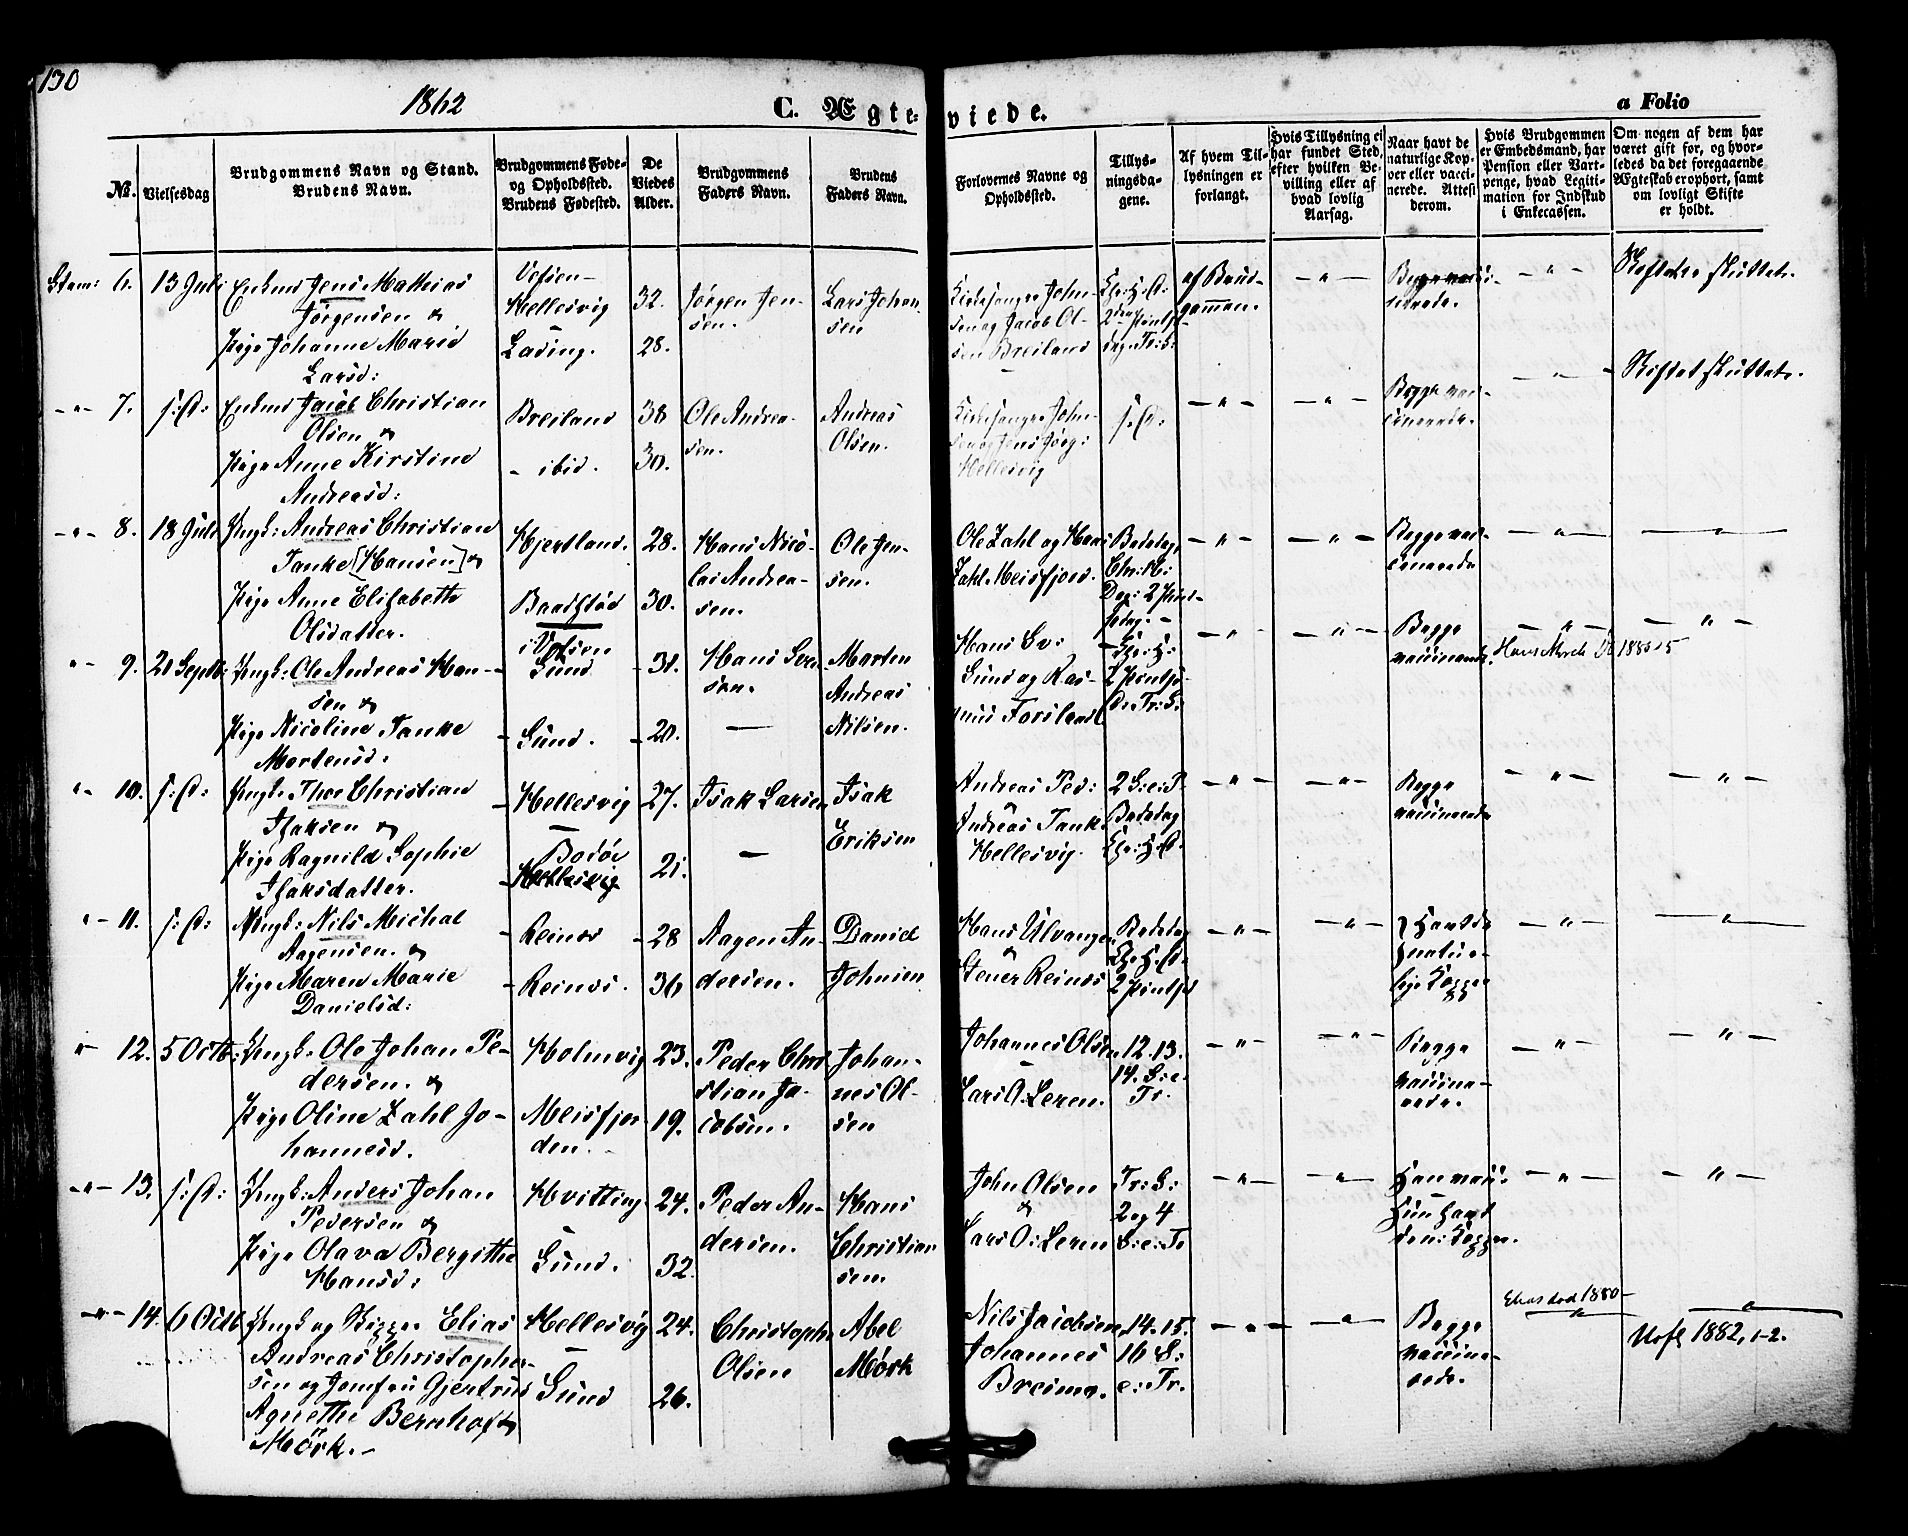 130
1862
C. Ægte-
viede.
a Folio
No.
Vielsesdag
Brudgommens Navn og Stand.
Brudens Navn.
Brudgommens Føde-
og Opholdssted.
Brudens Fødested.
De
Viedes
Alder.
Brudgommens
Faders Navn.
Brudens
Faders Navn.
Forlovernes Navne og
Opholdssted.
Tillys-
ningsda-
gene.
Af hvem Til-
lysningen er
forlangt.
Hvis Tillysning ei
har fundet Sted,
efter hvilken Be-
villing eller af
hvad lovlig
Aarsag.
Naar havt de
naturlige Kop-
per eller vacci-
nerede. Attest
derom.
Hvis Brudgommen
er Embedsmand, har
Pension eller Vart-
penge, hvad Legiti-
mation for Indskud
i Enkecassen.
Om nogen af dem har
været gift før, og hvor-
ledes da det foregaaende
Ægteskab er ophørt, samt
om lovligt Skifte
er holdt.
6. 13 Juli
Enkem Jens Mathias
Jörgensen &
Pige Johanne Marie
Larsd:
Vefsen-
Hellesvig
Lading.
32.
28.
Jörgen Jen-
sen.
Lars Johan
sen
Kirkesanger John-
sen og Jacob Ol-
sen Breiland
2den Pintse-
dag. Tr: S:
af Brud-
gommen.
— " —
Begge vacci-
nerede.
— " —
Skiftet sluttet.
— " — 7. s: D:
Enkem Jacob Christian
Olsen &
Pige Anne Kirstine
Andreasd:
Breiland
- ibid.
38
30.
Ole Andrea-
sen.
Andreas
Olsen.
Kirkesanger John-
sen og Jens Jörg:
Hellesvig
s: D:
— " —
— " —
Begge vac-
cinerede.
— " —
Skiftet sluttet.
— " — 8. 18 Juli
Ungk: Andreas Christian
Tanke [Hansen] &
Pige Anne Elisabeth
Olsdatter.
Hjertland.
Baadstød
i Vefsen
28.
30.
Hans Nico-
lai Andrea-
sen.
Ole Jen-
sen.
Ole Zahl og Hans
Zahl Meisfjord.
Bededag,
Chr: H:
Dag: 2 Pint-
sedag. -
— " —
— " —
Begge vac-
cinerede
— " —
— " —
" — 9. 20 Septb:
Ungk: Ole Andreas Han-
sen &
Pige Nicoline Tanke
Mortensd:
Sund
Sund.
31.
20.
Hans Sör-
sen.
—
Morten
Andreas
Nilsen.
Hans
Sund og Ras-
mus Forsland
2 Pintse
D: Tr: S:
— " —
— " —
Begge
vaccinerede.
— " —
— " —
" — 10. s: D:
Ungk: Thor Christian
Isaksen &
Pige Ragnild Sophie
Isaksdatter.
Hellesvig
Bodöe
Hellesvig
27.
21.
Isak Larsen
—
Isak
Eriksen
Andreas Ped:
Andreas Tank
Hellesvig.
2 S: e: P.
Bededag
— " —
— " —
Begge
vaccinerede
— " —
— " —
" — 11. s: D:
Ungk: Nils Michal
Aagensen. &
Pige Maren Marie
Danielsd:
Reinös
Reinös.
28
36
Aagen An-
dersen.
Daniel
Johnsen
Hans Ulvangen
&
Stener Reinös
Bededag
2 Pintsd
— " —
— " —
natur-
lige Kopper
— " —
— " —
" 12. 5 Octb:
Ungk. Ole Johan Pe-
dersen. &
Pige Oline Zahl Jo-
hannesd.
Holmvig
Meisfjor-
den.
23.
19.
Peder Chri
stian Ja-
cobsen.
Johan-
nes Ol-
sen
Johannes Olsen
Lars O. Leren.
12. 13.
14. S: e.
Tr.
— " —
— " —
Begge
vaccine-
rede.
— " —
— " —
— " — 13. s: D:
Ungk: Anders Johan
Pedersen &
Pige Olava Bergitha
Hansd:
Hvitting
Sund.
24.
32.
Peder An-
dersen.
Hans
Christian
sen.
John Olsen
&
Lars O: Leren
Tr: S:
2 og 4
S: e: Tr
— " —
— " —
Han vacci:
Hun havt
den: Kopper.
— " —
— " —
— " — 14. 6 Octb
Ungk og Skipper Elias
Andreas Christopher-
sen og Jomfru Gjertrud
Agnethe Bernhoft
Mörk. -
Hellesvig
Sund
24.
26.
Christopher
Olsen
Abel
Mörk
Nils Jacobsen
Johannes
Breimo.
14. 15.
16 S:
e: Tr.
— " —
— " —
Begge
vaccine-
rede.
Elias död 1880 -
— " —
— " —
1882, 1-2.